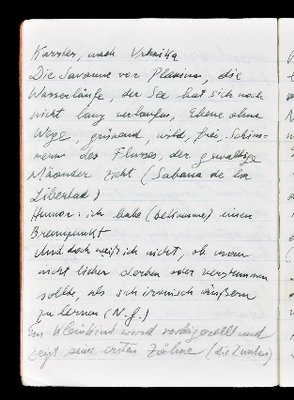 Karster, nach Vrhnika
Die Savanne vor Planina, die
Wasserläufe, der See hat sich noch
nicht lang verlaufen, Ebene ohne
Wege, grünend, wild, frei, Schim-
mern des Flusses, der gewaltige
Mäander zieht (Sabana de la
Libertad)
Humor: ich habe (bekomme) einen
Brennpunkt
Und doch weiß ich nicht, ob man
nicht lieber sterben oder verstummen
sollte, als sich ironisch äußern
zu lernen (N.g.)
Ein Kleinkind wird vorbeigerollt und
zeigt seine ersten Zähne (die zwei)